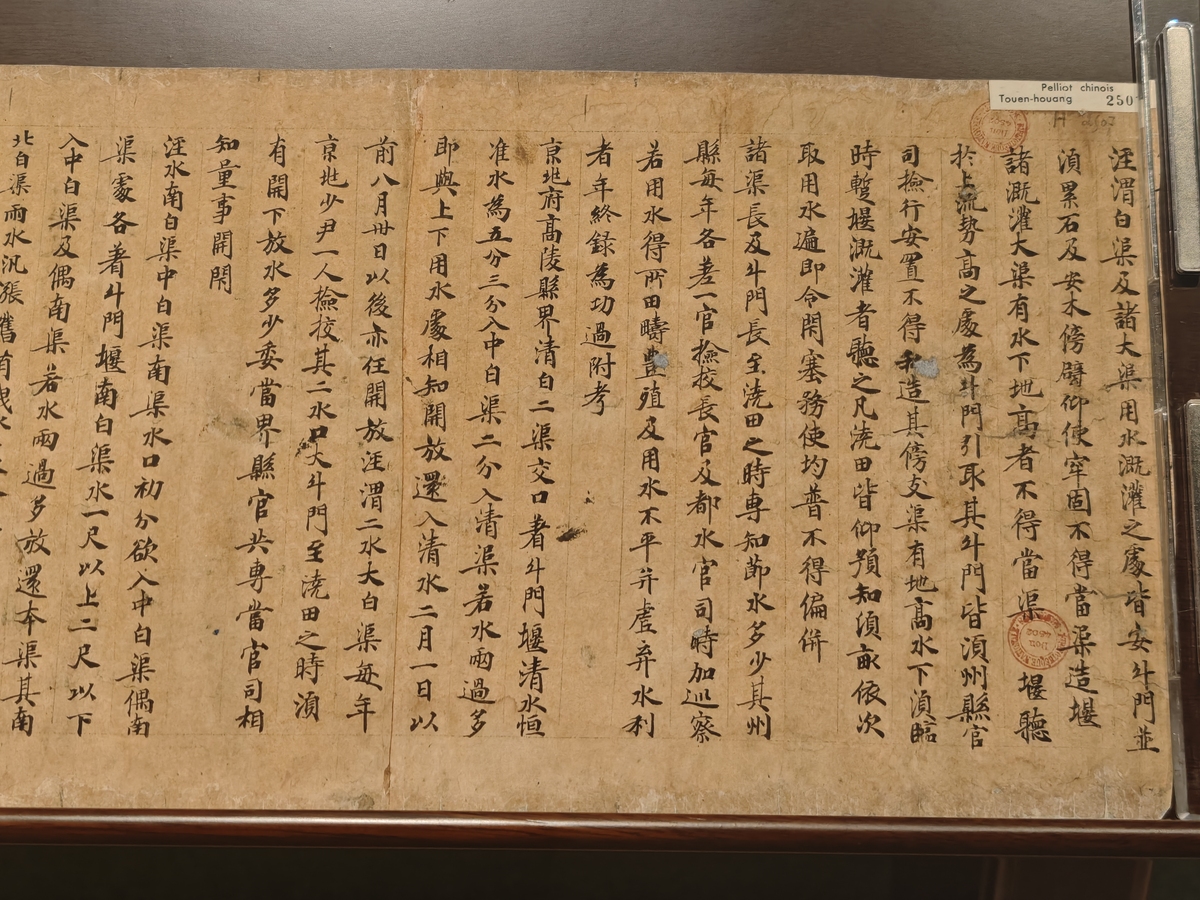 Pelliot chinois
Touen-houang 250
涇渭白渠及諸大渠用水溉灌之處皆安斗門並
須累石及安木傍壁仰使牢固不得當渠造堰
諸溉灌大渠有水下地高者不得當渠堰聽
於上流勢高之處為斗門引取其斗門皆須州縣官
司檢行安置不得私造其傍支渠有地高水下須臨
時蹔堰溉灌者聽之凡澆田皆仰預知須畝依次
取用水遍即令閇塞務使均普不得偏併
諸渠長及斗門長至澆田之時專知節水多少其州
縣每年各差一官檢挍長官及都水官司時加巡察
若用水得所田疇豐殖及用水不平并虛弃水利
者年終録為功過附考
京兆府高陵縣界清白二渠交口著斗門堰清水恒
准水為五分三分入中白渠二分入清渠若水雨過多
即與上下用水處相知開放還入清水二月一日以
前八月卅日以後亦任開放涇渭二水大白渠每年
京兆少尹一人檢挍其二水口大斗門至澆田之時須
有開下放水多少委當界縣官共專當官司相
知量事開閇
涇水南白渠中白渠南渠水口初分欲入中白渠偶南
渠處各著斗門堰南白渠水一尺以上二尺以下
入中白渠及偶南渠若水雨過多放還本渠其南
北白渠雨水汎漲舊有洩水